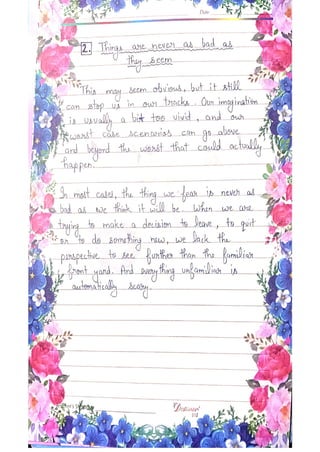 Date
2. Things are never as bad as
thy seem
This may seem obvious, but it still
can stop us in our tracks. Our imagination
is usually a bit too vivid, and our
worst case scenarios can go above
and beyond the worst that could actually
happen.
In most cases, the thing we fear is never as
bad as we think it will be. When we are
trying to make a decision to leave, to quit
or to do something new, we lack the
perspective to see further than the familiar
front yard. And everything unfamiliar is
automatically scary.